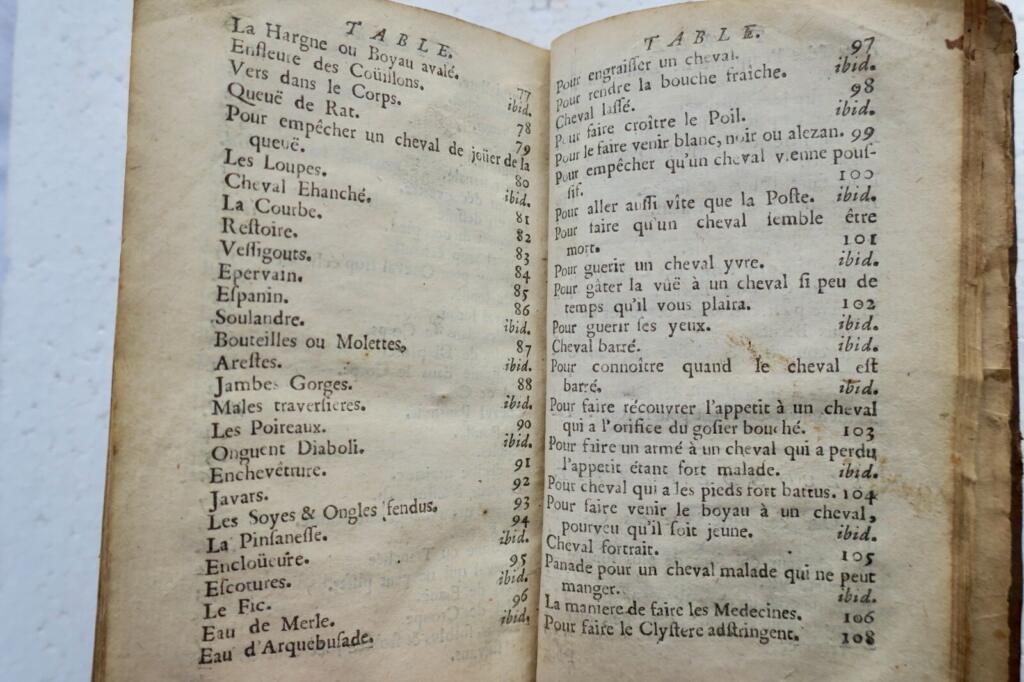 TABLE.
La Hargne ou Boyau avalé. 77
Enfleure des Coüillons. ibid.
Vers dans le Corps. 78
Queuë de Rat. 79
Pour empêcher un cheval de joüer de la
queuë. 80
Les Loupes. ibid.
Cheval Ehanché. 81
La Courbe. 82
Reſtoire. 83
Veſſigouts. 84
Epervain. 85
Eſpanin. 86
Soulandre. ibid.
Bouteilles ou Molettes. 87
Areſtes. ibid.
Jambes Gorges. 88
Males traverſieres. ibid.
Les Poireaux. 90
Onguent Diaboli. ibid.
Enchevêtrure. 91
Javars. 92
Les Soyes & Ongles fendus. 93
La Pinſaneſſe. 94
Encloüeure. ibid.
Eſcotures. 95
Le Fic. ibid.
Eau de Merle. 96
Eau d'Arquebuſade. ibid.
TABLE.
Pour engraiſſer un cheval. 97
Pour rendre la bouche fraîche. ibid.
Cheval laſſé. 98
Pour faire croître le Poil. ibid.
Pour le faire venir blanc, noir ou alezan. 99
Pour empêcher qu'un cheval vienne pouſ-
ſif. 100
Pour aller auſſi vîte que la Poſte. ibid.
Pour faire qu'un cheval ſemble être
mort. 101
Pour guerir un cheval yvre. ibid.
Pour gâter la vûë à un cheval ſi peu de
temps qu'il vous plaira. 102
Pour guerir ſes yeux. ibid.
Cheval barré. ibid.
Pour connoître quand le cheval eſt
barré. ibid.
Pour faire récouvrer l'appetit à un cheval
qui a l'orifice du goſier bouché. 103
Pour faire un armé à un cheval qui a perdu
l'appetit étant fort malade. ibid.
Pour cheval qui a les pieds fort battus. 104
Pour faire venir le boyau à un cheval,
pourveu qu'il ſoit jeune. ibid.
Cheval fortrait. 105
Panade pour un cheval malade qui ne peut
manger. ibid.
La maniere de faire les Medecines. 106
Pour faire le Clyſtere adſtringent. 108